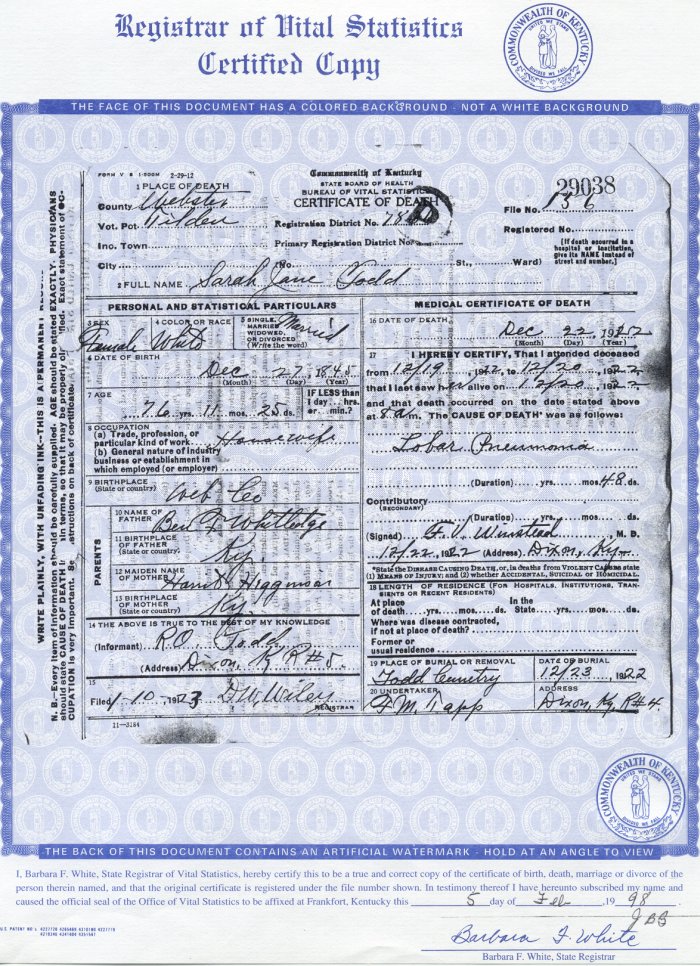 Registrar of Vital Statistics
Certified Copy
COMMONWEALTH OF KENTUCKY
UNITED WE STAND
DIVIDED WE FALL
THE FACE OF THIS DOCUMENT HAS A COLORED BACKGROUND - NOT A WHITE BACKGROUND
FORM V S 1-500M 2-29-12
Commonwealth of Kentucky
STATE BOARD OF HEALTH
BUREAU OF VITAL STATISTICS
CERTIFICATE OF DEATH
29038
1 PLACE OF DEATH
County Webster
File No. 136
Vot. Pct
Registration District No. 78
Registered No.
Inc. Town
Primary Registration District No.
[If death occurred in a hospital or institution, give its NAME instead of street and number.]
City (No. St., Ward)
2 FULL NAME Sarah Jane Todd
PERSONAL AND STATISTICAL PARTICULARS
3 SEX 4 COLOR OR RACE 5 SINGLE, MARRIED WIDOWED, OR DIVORCED (Write the word)
Female White Married
6 DATE OF BIRTH
Dec 27 1845
(Month) (Day) (Year)
7 AGE
76 yrs. 11 mos. 25 ds.
IF LESS than 1 day hrs. or min.?
8 OCCUPATION
(a) Trade, profession, or particular kind of work Housewife
(b) General nature of industry business or establishment in which employed (or employer)
9 BIRTHPLACE
(State or country) Web Co
PARENTS
10 NAME OF FATHER Ben F Whitledge
11 BIRTHPLACE OF FATHER (State or country) Ky.
12 MAIDEN NAME OF MOTHER Harriet Higginson
13 BIRTHPLACE OF MOTHER (State or country) Ky
14 THE ABOVE IS TRUE TO THE BEST OF MY KNOWLEDGE
(Informant) R.O. Todd
(Address) Dixon, Ky R#5.
15
Filed 1-10-1923 D.W. Wiley
REGISTRAR
11-3184
MEDICAL CERTIFICATE OF DEATH
16 DATE OF DEATH
Dec 22 1922
(Month) (Day) (Year)
17 I HEREBY CERTIFY, That I attended deceased
from 12/19, 1922, to 12/20, 1922
that I last saw her alive on 12/20, 1922
and that death occurred on the date stated above
at 8 am. The CAUSE OF DEATH* was as follows:
Lobar Pneumonia
(Duration) yrs. mos. 48 ds.
Contributory
(SECONDARY)
(Duration) yrs. mos. ds.
(Signed) G. V. Winstead M. D.
12/22, 1922 (Address) Dixon, Ky
*State the DISEASE CAUSING DEATH, or, in deaths from VIOLENT CAUSES state
(1) MEANS OF INJURY; and (2) whether ACCIDENTAL, SUICIDAL or HOMICIDAL.
18 LENGTH OF RESIDENCE (FOR HOSPITALS, INSTITUTIONS, TRANSIENTS OR RECENT RESIDENTS)
At place of death yrs. mos. ds. In the State yrs. mos. ds.
Where was disease contracted, if not at place of death?
Former or usual residence
19 PLACE OF BURIAL OR REMOVAL DATE OF BURIAL
Todd Cemetry 12/23, 1922
20 UNDERTAKER ADDRESS
Tapp Dixon, Ky R#4.
WRITE PLAINLY, WITH UNFADING INK—THIS IS A PERMANENT
N. B.—Every item of information should be carefully supplied. AGE should be stated EXACTLY. PHYSICIANS
should state CAUSE OF DEATH in terms, so that it may be properly Exact statement of OC-
CUPATION is very important. See instructions on back of certificate.
COMMONWEALTH OF KENTUCKY
UNITED WE STAND
DIVIDED WE FALL
THE BACK OF THIS DOCUMENT CONTAINS AN ARTIFICIAL WATERMARK - HOLD AT AN ANGLE TO VIEW
I, Barbara F. White, State Registrar of Vital Statistics, hereby certify this to be a true and correct copy of the certificate of birth, death, marriage or divorce of the
person therein named, and that the original certificate is registered under the file number shown. In testimony thereof I have hereunto subscribed my name and
caused the official seal of the Office of Vital Statistics to be affixed at Frankfort, Kentucky this 5 day of Feb, 1998.
Barbara F. White
Barbara F. White, State Registrar